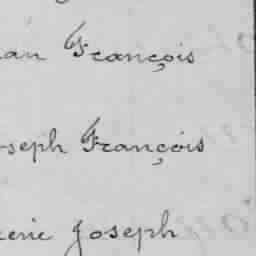 an François
oseph François
erie Joseph